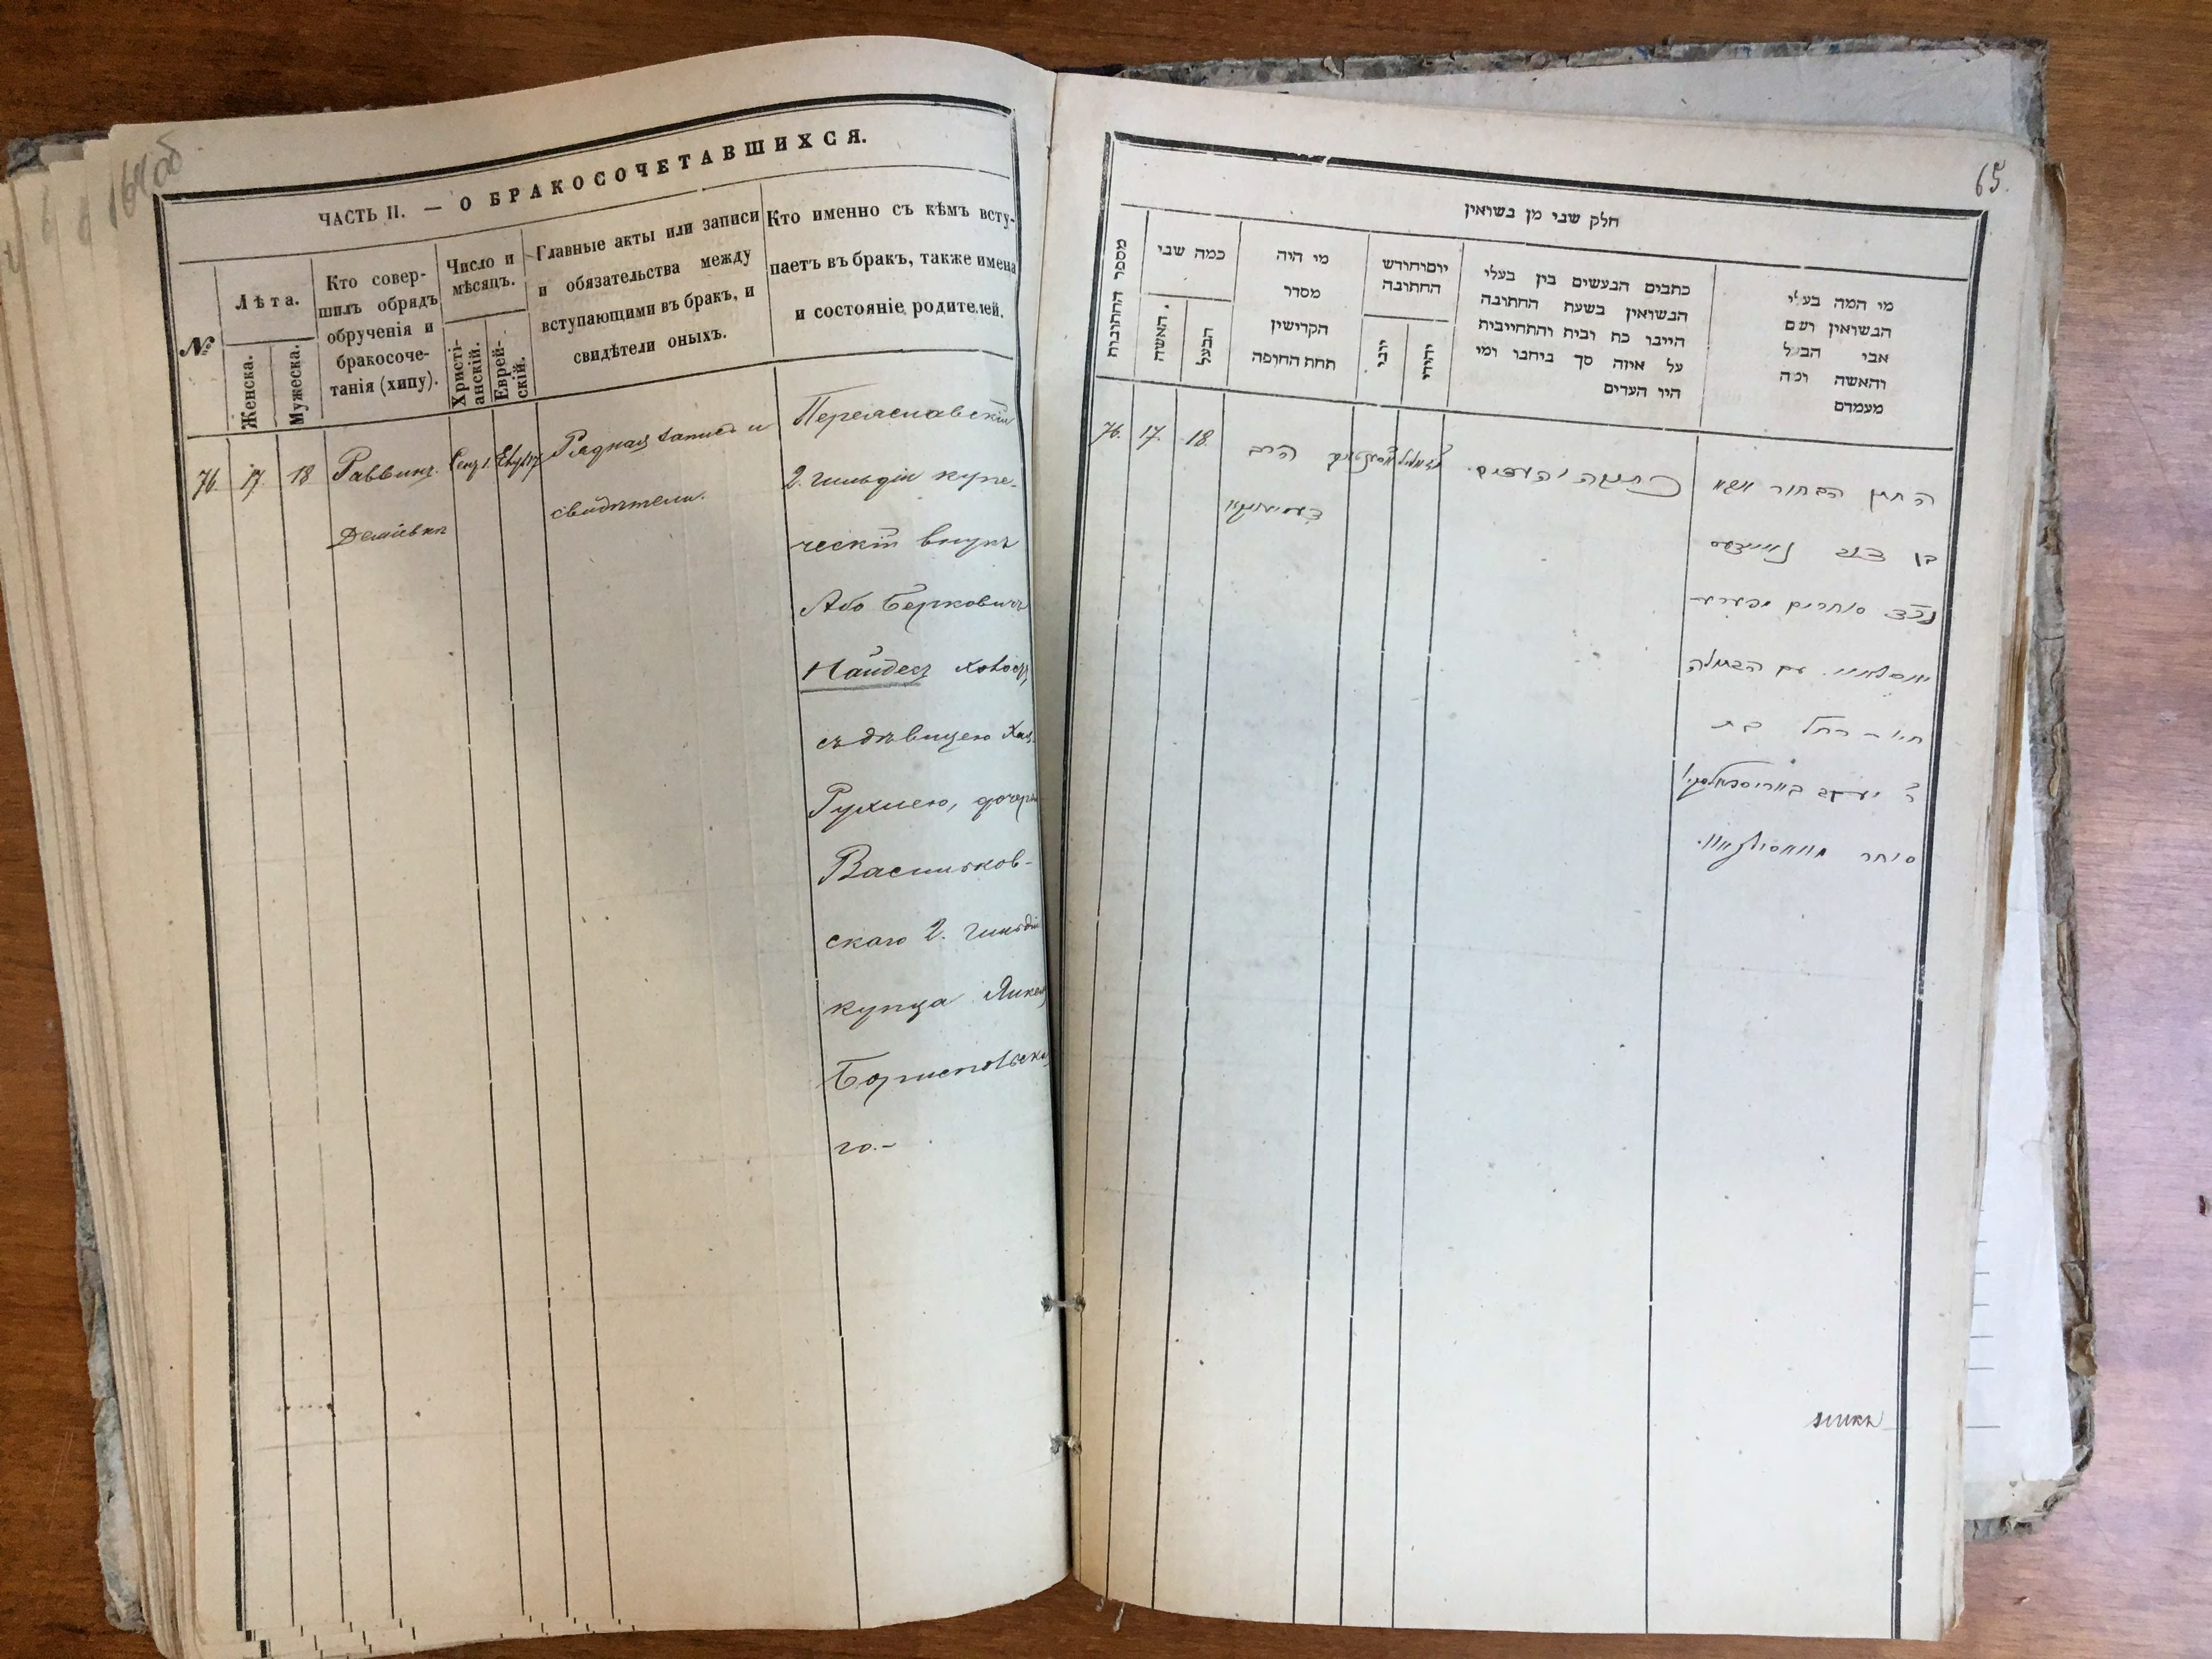 164об
ЧАСТЬ II. — О БРАКОСОЧЕТАВШИХСЯ.
№
Лѣта.
Женска.
Мужеска.
Кто совер-
шилъ обрядъ
обрученія и
бракосоче-
танія (хипу).
Число и
мѣсяцъ.
Христі-
анскій.
Еврей-
скій.
Главные акты или записи
и обязательства между
вступающими въ бракъ, и
свидѣтели оныхъ.
Кто именно съ кѣмъ всту-
паетъ въ бракъ, также имена
и состояніе родителей.
76.
17.
18
Раввинъ
Деміевки
Сент. 1.
Рядная запись и
свидѣтели.
Переяславскій
2. гильдіи купе-
ческій внукъ
Або Берковичъ
Найдесъ холост,
съ дѣвицею Хая
Рухлею, дочерь
Васильков-
скаго 2. гильдіи
купца Янкеля
Бориспольска
го.-
65.
חלק שני מן נשואין
מספר החתונות
כמה שני
האשה
הבעל
מי היה
מסדר
הקדישין
תחת החופה
יום וחודש
החתונה
יוני
יהודי
כתבים הנעשים בין בעלי
הנשואין בשעת החתונה
היינו כת ובית והתחייבית
על איזה סך ביחנו ומי
היו העדים
מי המה בעלי
הנשואין ושם
אבי הבעל
והאשה ומה
מעמדם
76.
17.
18.
הרב
כתובה ועדים.
החתן הבחור אבא
בן
סוחרים
עם הבתולה
חי' רחל בת
ר' יעקב באריספאלסקי
סוחר